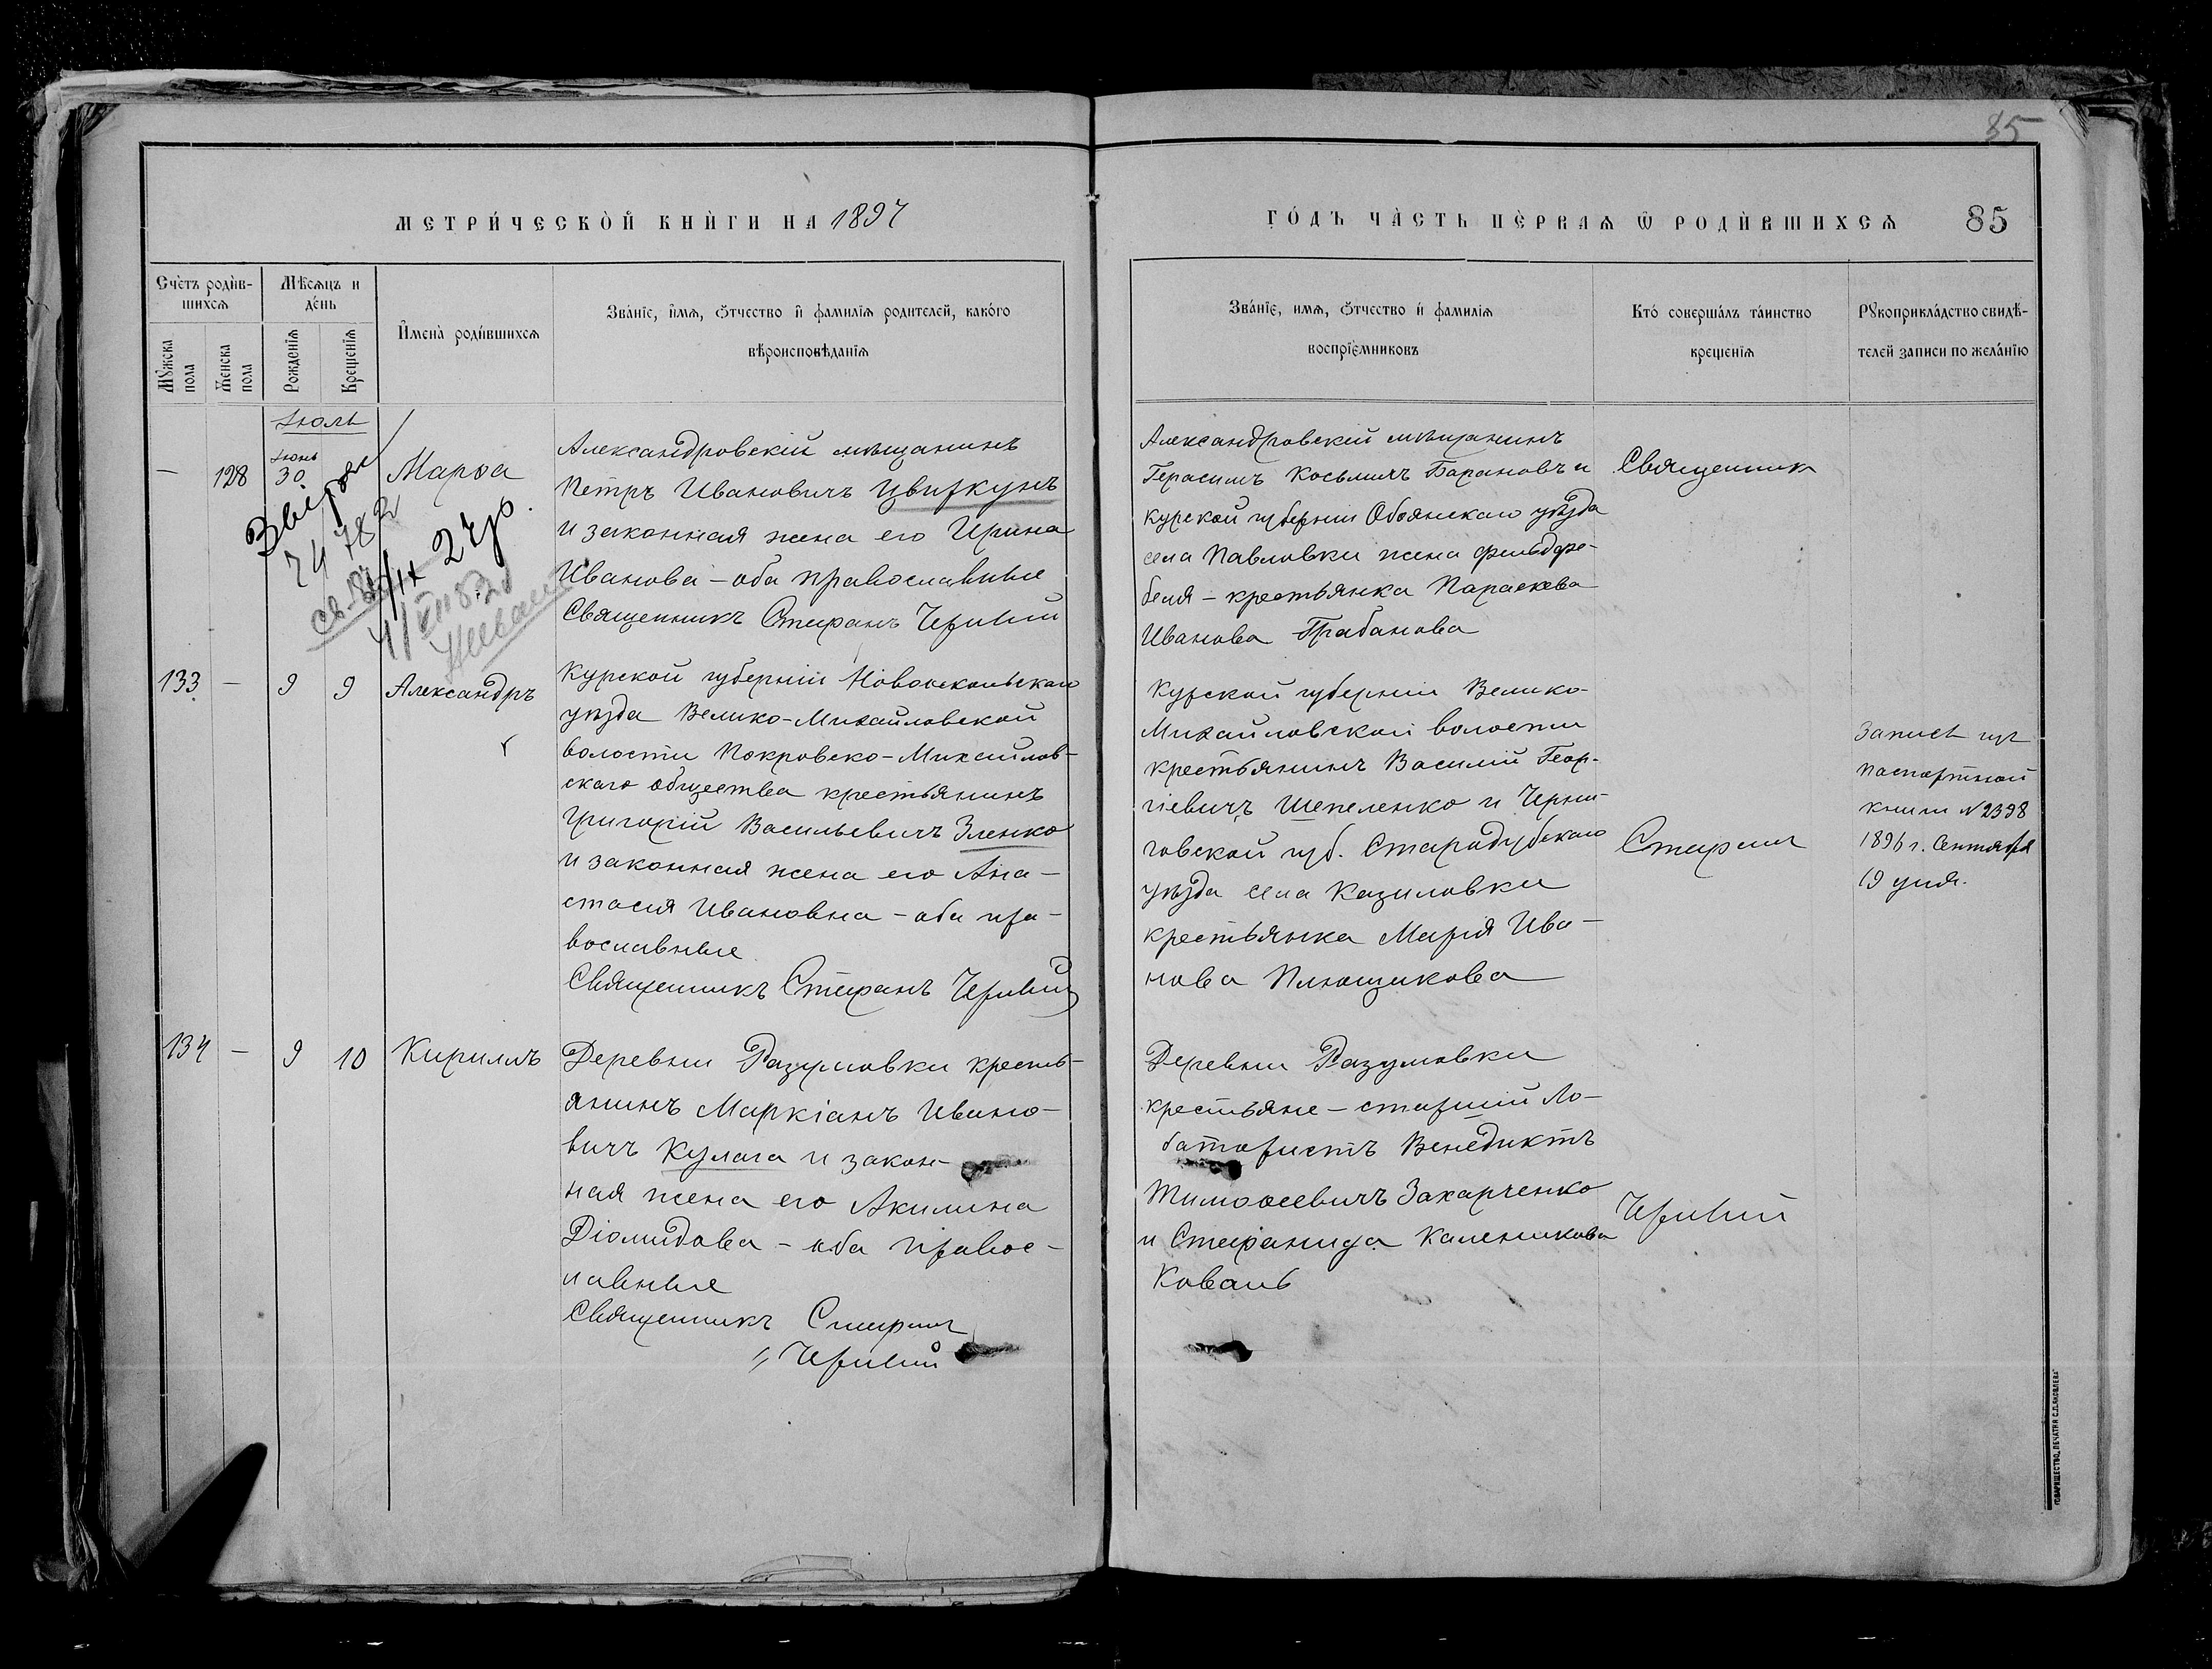 85
МЕТРИ́ЧЕСКО̀Й КНЍГИ НА 1897
ГО́ДЪ ЧА̀СТЬ ПЀРВАѦ Ѡ҆ РОДЍВШИХСѦ 85
Сче́тъ роди́в-
шихсѧ
Мѣ́сѧцъ и
де́нь
Мꙋжска
пола
Женска
пола
Рожденїѧ
Крещенїѧ
И҆мена̀ роди́вшихсѧ
Зва́нїе, и҆́мѧ, ѻ҆́тчество и҆ фамилїѧ родителей, како́го
вѣроисповѣ́данїѧ
Зва́нїе, имѧ, ѻ҆́тчество и҆ фамилїѧ
воспрїе́мниковъ
Кто̀ соверша́лъ та́инство
креще́нїѧ
Рꙋкоприкла́дство свидѣ́-
телей записи по жела́нїю
Іюль
—
128
Іюнь
30
Марѳа
Александровскій мѣщанинъ
Петръ Ивановичъ Цвиркунъ
и законная жена его Ирина
Иванова – оба православные
Священникъ Стефанъ
Александровскій мѣщанинъ
Герасимъ Косьминъ Барановъ и
Курской губерніи Обоянскаго уѣзда
села Павловки жена фельдфе-
беля – крестьянка Параскева
Иванова Грабанова
Священник
133
—
9
9
Александръ
Курской губерніи Новооскольскаго
уѣзда Велико-Михайловской
волости Покровско-Михайлов-
скаго общества крестьянинъ
Григорій Васильевичъ Зленко
и законная жена его Ана-
стасія Ивановна – оба пра-
вославные
Священникъ Стефанъ
Курской губерніи Велико-
Михайловской волости
крестьянинъ Василій Геор-
гіевичъ Шепеленко и Черни-
говской губ. Стародубскаго
уѣзда села Казиловки
крестьянка Марія Ива-
нова Плющикова
Стефанъ
Запись
паспортной
книги № 2398
1896 г. Сентября
19 дня.
134
—
9
10
Кириллъ
Деревни Разумовки кресть-
янинъ Маркіанъ Ивано-
вичъ Кулага и закон-
ная жена его Акилина
Діомидова – оба правос-
лавные
Священникъ Стефанъ
Деревни Разумовки
крестьяне – старшій Ло-
батористъ Венедиктъ
Тимоѳеевичъ Захарченко
и Стефанида Каленикова
Коваль